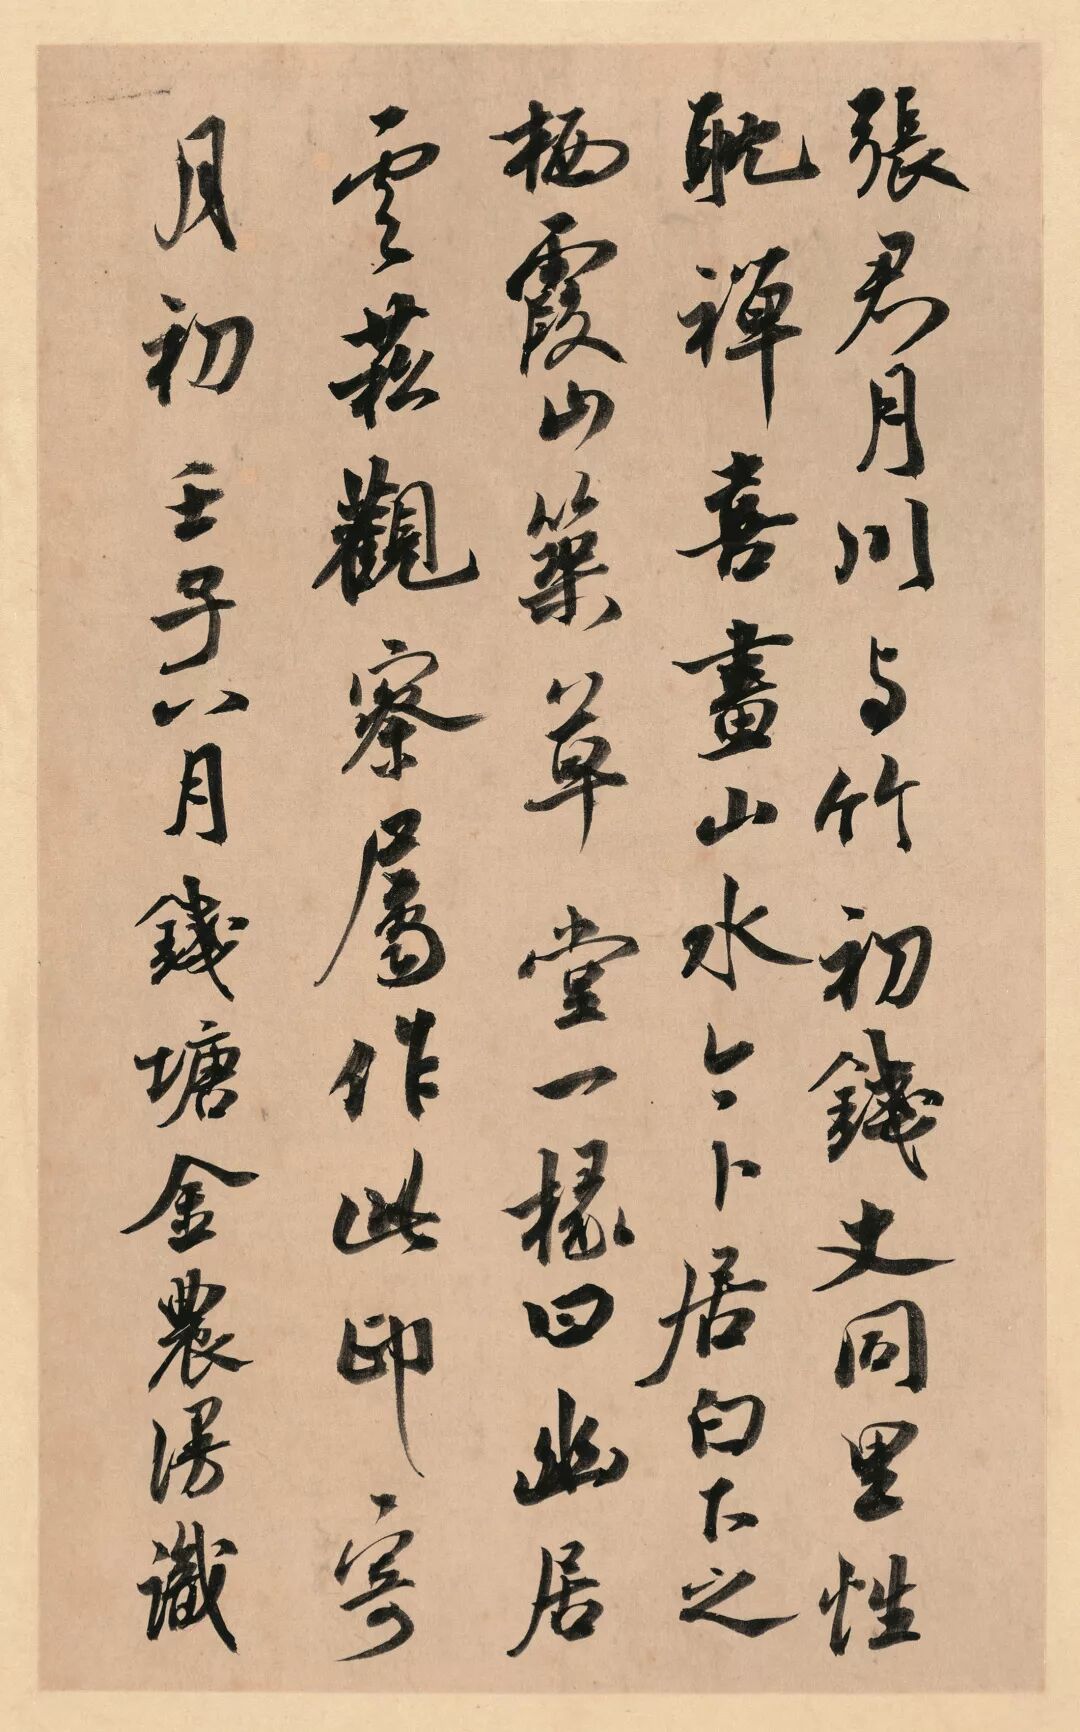 張君月川与竹初錢丈同里性
耽禪喜畫山水今卜居白下之
栖霞山築草堂一椽曰幽居
雲菘觀察属作此印寄
月初壬子八月錢塘金農漫識